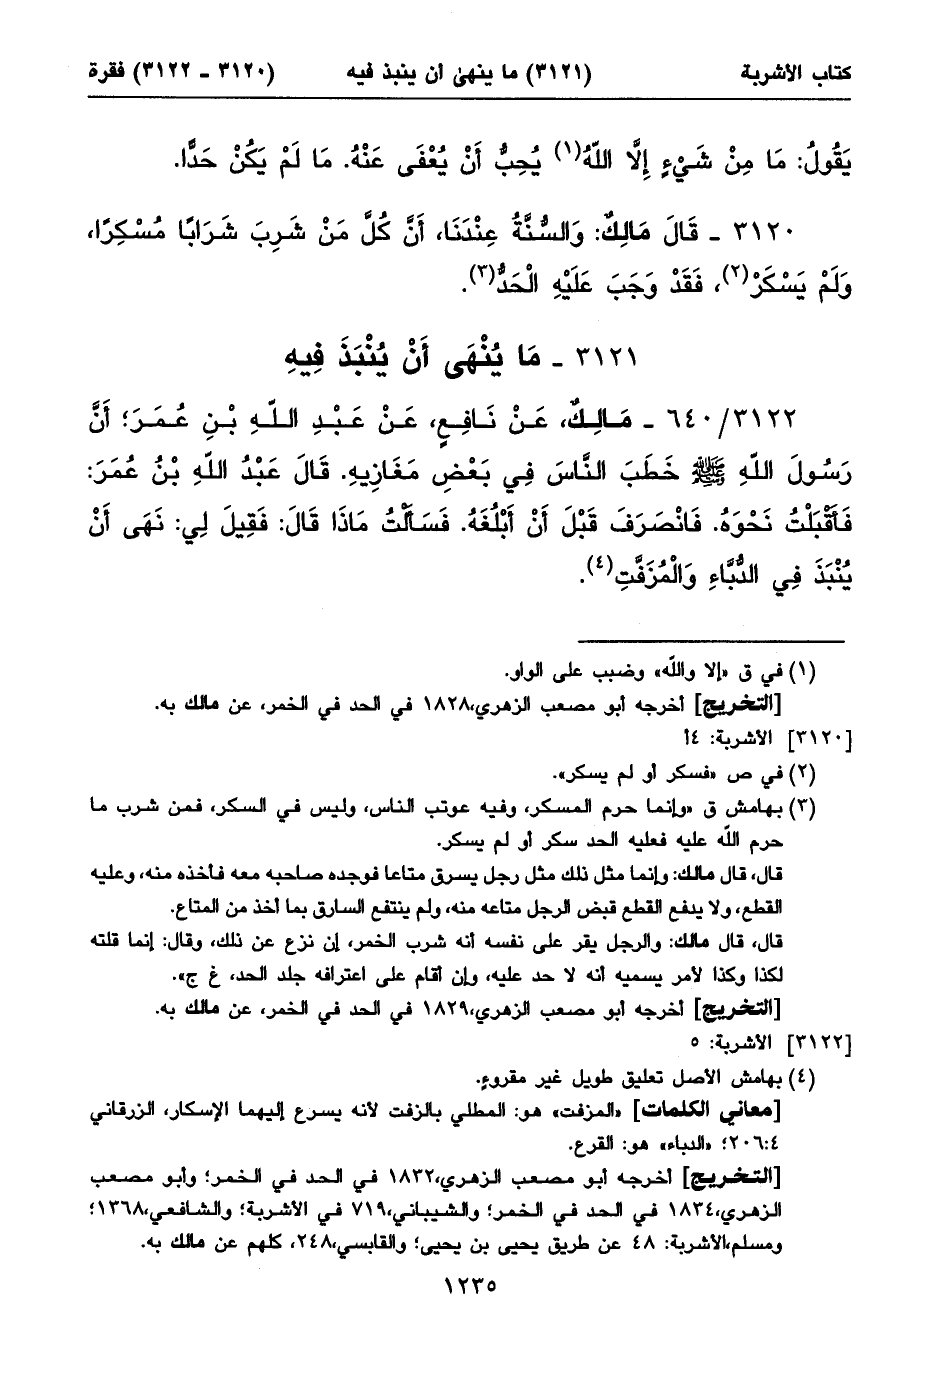 كتاب الأشربة (٣١٢١) ما ينهىٰ أن ينبذ فيه (٣١٢٠ ـ ٣١٢٢) فقرة
يَقُولُ: مَا مِنْ شَيْءٍ إِلَّا اللّهُ(١) يُحِبُّ أَنْ يُعْفَى عَنْهُ. مَا لَمْ يَكُنْ حَدًّا.
٣١٢٠ ـ قَالَ مَالِكٌ: وَالسُّنَّةُ عِنْدَنَا، أَنَّ كُلَّ مَنْ شَرِبَ شَرَابًا مُسْكِرًا،
وَلَمْ يَسْكَرْ(٢)، فَقَدْ وَجَبَ عَلَيْهِ الْحَدُّ(٣).
٣١٢١ ـ مَا يُنْهَى أَنْ يُنْبَذَ فِيهِ
٦٤٠/٣١٢٢ ـ مَالِكٌ، عَنْ نَافِعٍ، عَنْ عَبْدِ اللّهِ بْنِ عُمَرَ؛ أَنَّ
رَسُولَ اللّهِ ﷺ خَطَبَ النَّاسَ فِي بَعْضِ مَغَازِيهِ. قَالَ عَبْدُ اللّهِ بْنُ عُمَرَ:
فَأَقْبَلْتُ نَحْوَهُ. فَانْصَرَفَ قَبْلَ أَنْ أَبْلُغَهُ. فَسَأَلْتُ مَاذَا قَالَ: فَقِيلَ لِي: نَهَى أَنْ
يُنْبَذَ فِي الدُّبَّاءِ وَالْمُزَفَّتِ(٤).
(١) في ق «إلا واللّه» وضبب على الواو.
[التخريج] أخرجه أبو مصعب الزهري، ١٨٢٨ في الحد في الخمر، عن مالك به.
[٣١٢٠] الأشربة: ٤أ
(٢) في ص «فسكر أو لم يسكر».
(٣) بهامش ق «وإنما حرم المسكر، وفيه عوتب الناس، وليس في السكر، فمن شرب ما
حرم اللّه عليه فعليه الحد سكر أو لم يسكر.
قال، قال مالك: وإنما مثل ذلك مثل رجل يسرق متاعا فوجده صاحبه معه فأخذه منه، وعليه
القطع، ولا يدفع القطع قبض الرجل متاعه منه، ولم ينتفع السارق بما أخذ من المتاع.
قال، قال مالك: والرجل يقر على نفسه أنه شرب الخمر، إن نزع عن ذلك، وقال: إنما قلته
لكذا وكذا لأمر يسميه أنه لا حد عليه، وإن أقام على اعترافه جلد الحد، غ ج».
[التخريج] أخرجه أبو مصعب الزهري، ١٨٢٩ في الحد في الخمر، عن مالك به.
[٣١٢٢] الأشربة: ٥
(٤) بهامش الأصل تعليق طويل غير مقروءٍ.
[معاني الكلمات] «المزفت» هو: المطلي بالزفت لأنه يسرع إليهما الإسكار، الزرقاني
٢٠٦:٤؛ «الدباء» هو: القرع.
[التخريج] أخرجه أبو مصعب الزهري، ١٨٣٢ في الحد في الخمر؛ وأبو مصعب
الزهري، ١٨٣٤ في الحد في الخمر؛ والشيباني، ٧١٩ في الأشربة؛ والشافعي، ١٣٦٨؛
ومسلم، الأشربة: ٤٨ عن طريق يحيى بن يحيى؛ والقابسي، ٢٤٨، كلهم عن مالك به.
١٢٣٥